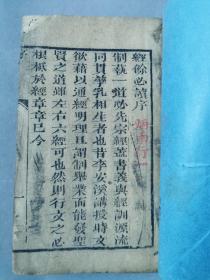 經餘必讀序
制執一道必先宗經蓋書義與經訓源流
同貫華乳相生者也昔李安溪講授時文
欲藉以通經明理且謂制舉業面能發聖
賢之道雖左右六經可也然則行文之必
根柢於經章章已今